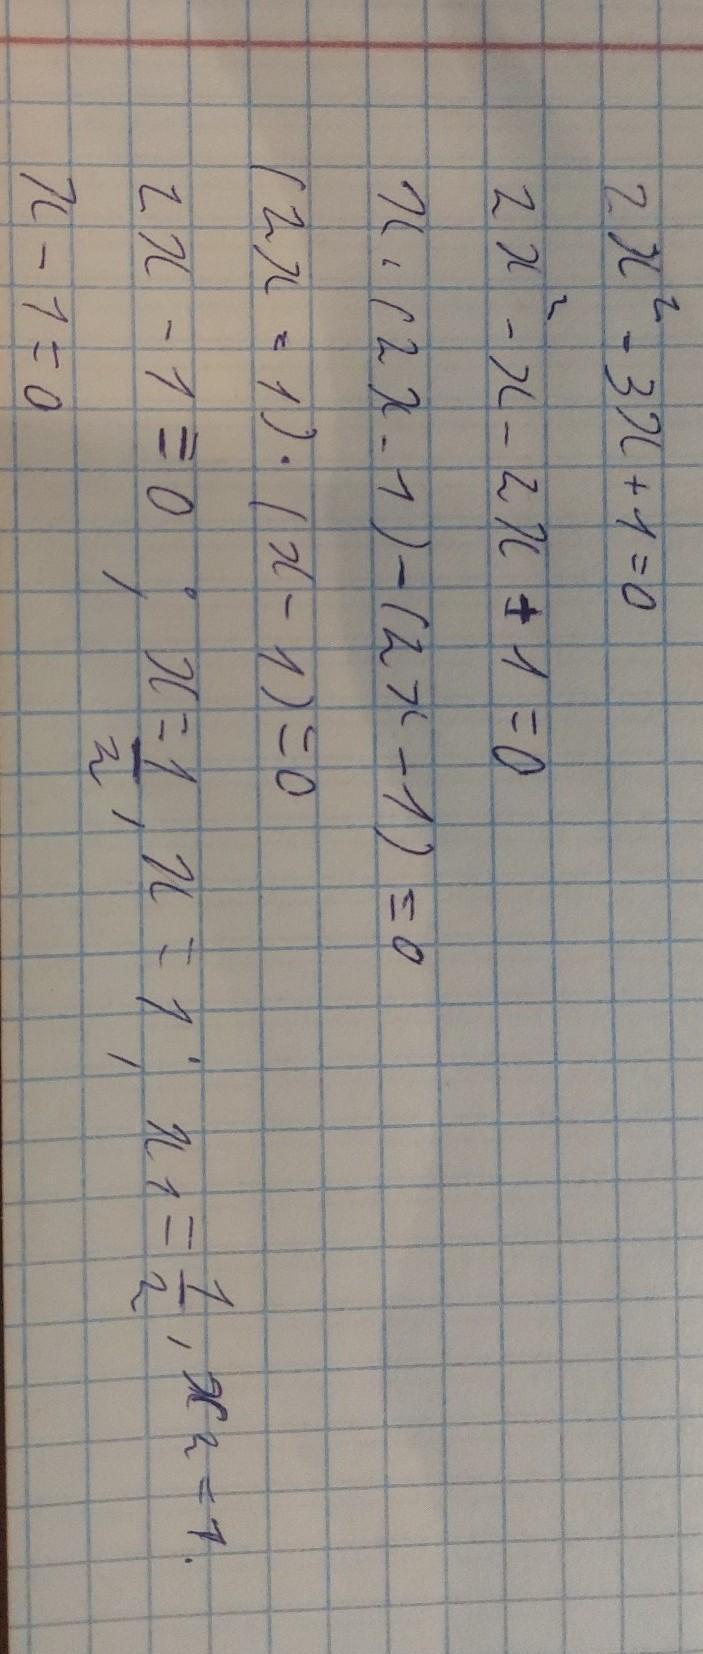 2x² - 3x + 1 = 0
2x² - x - 2x + 1 = 0
x · (2x - 1) - (2x - 1) = 0
(2x - 1) · (x - 1) = 0
2x - 1 = 0 ; x = 1/2, x = 1 ; x1 = 1/2, x2 = 1.
x - 1 = 0